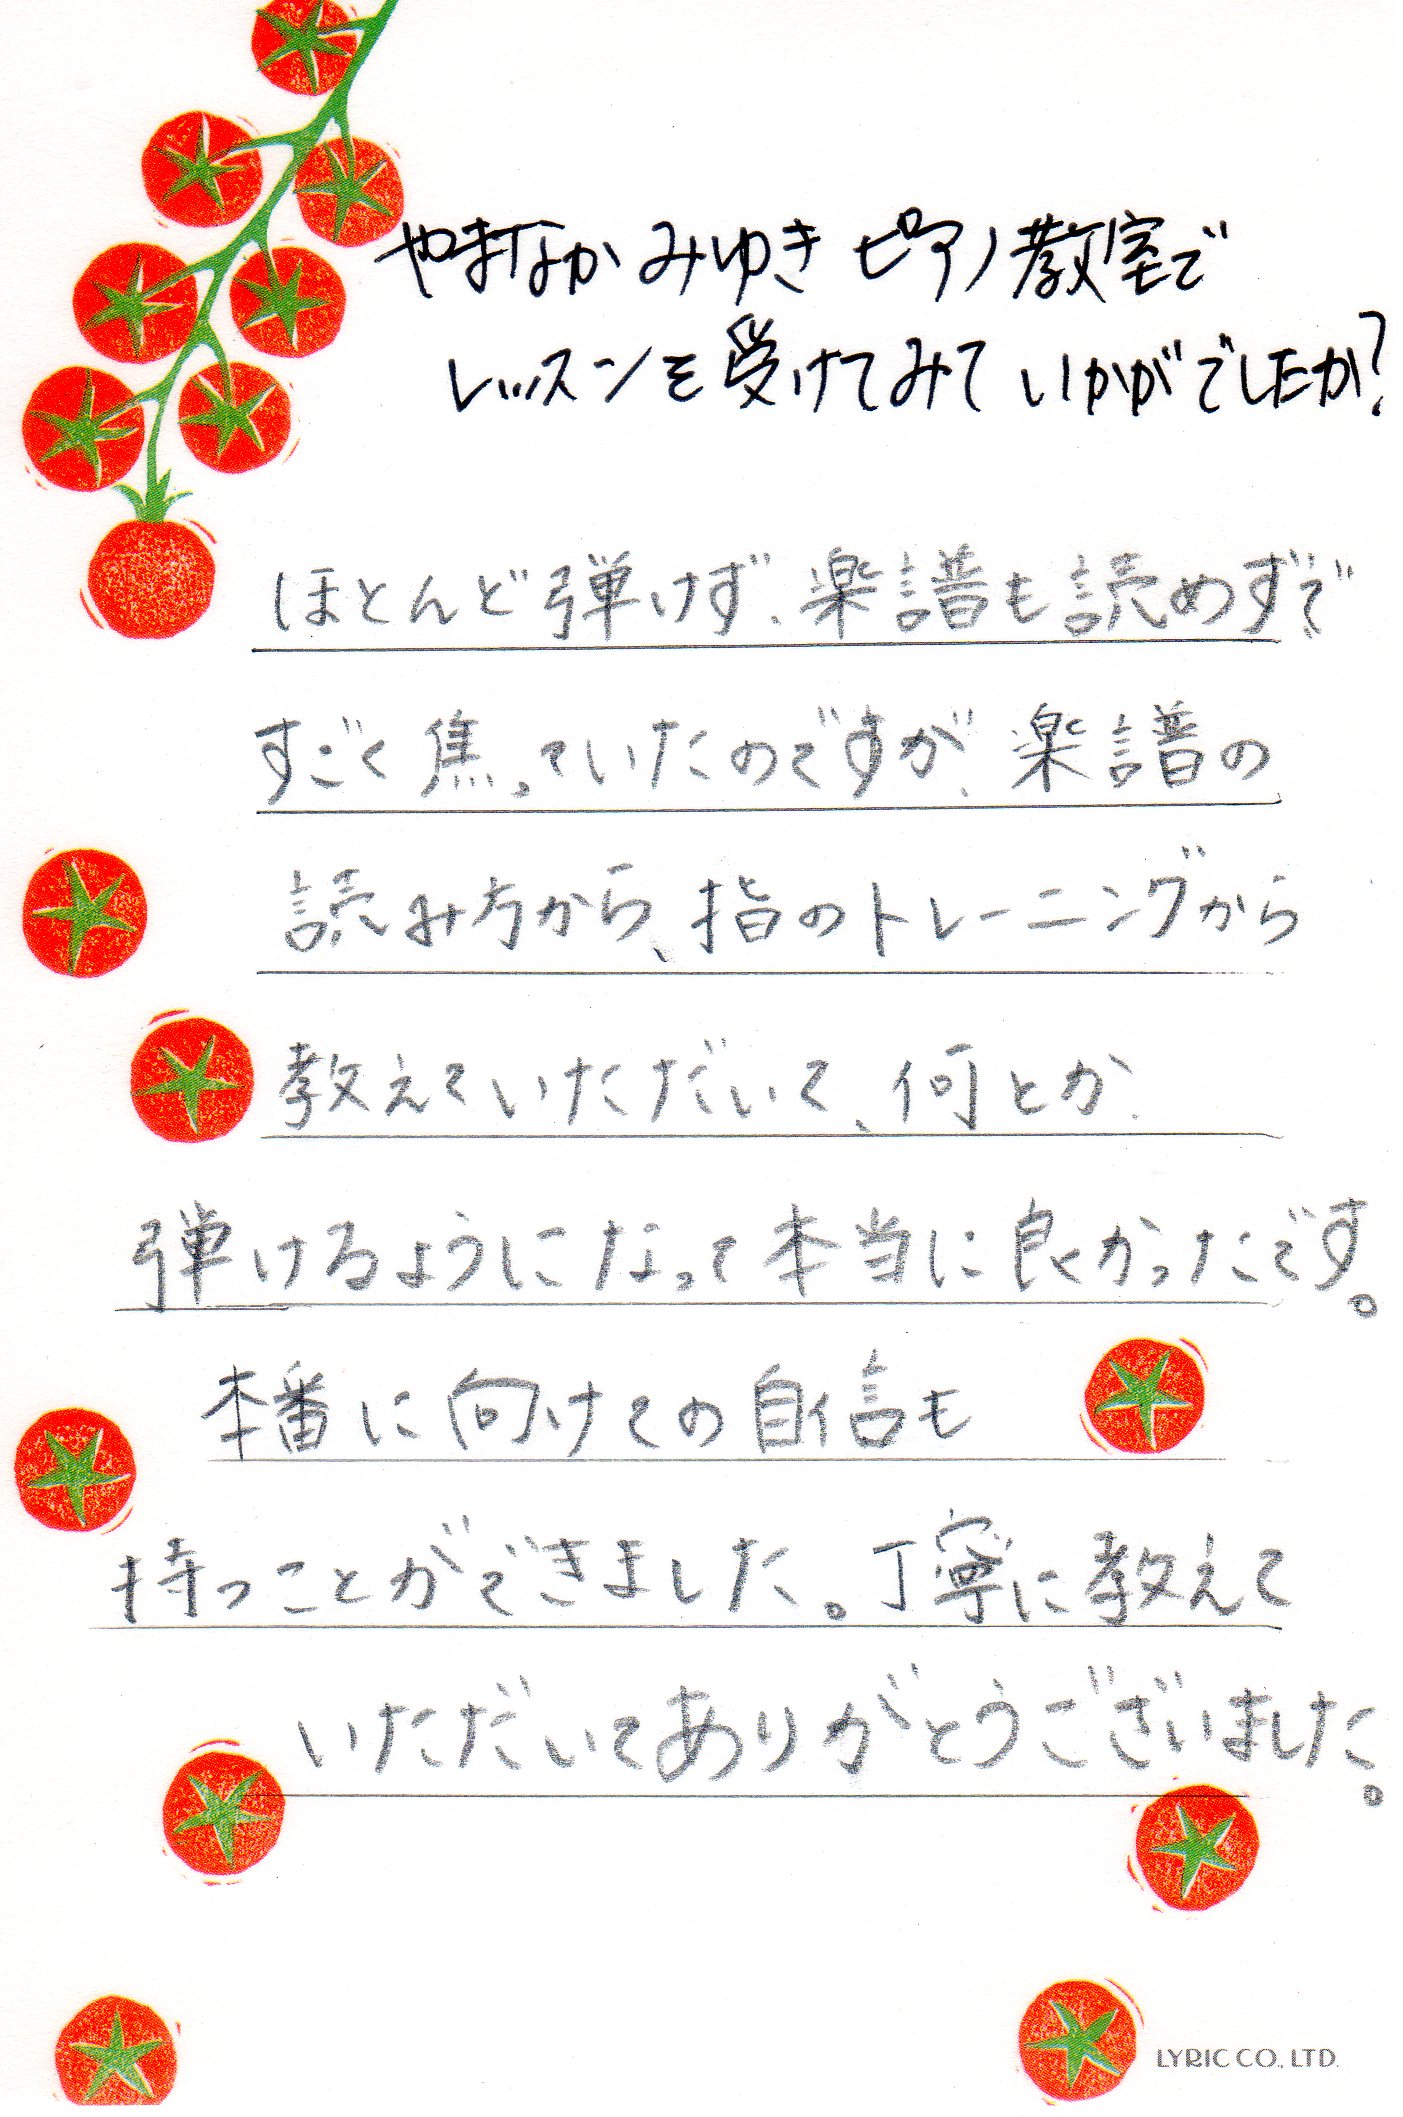 やまなかみゆき ピアノ教室で
レッスンを受けてみて いかがでしたか?
ほとんど弾けず、楽譜も読めずで、
すごく焦っていたのですが、楽譜の
読み方から、指のトレーニングから
教えていただいて、何とか、
弾けるようになって本当に良かったです。
本番に向けての自信も
持つことができました。丁寧に教えて
いただいてありがとうございました。
LYRIC CO., LTD.